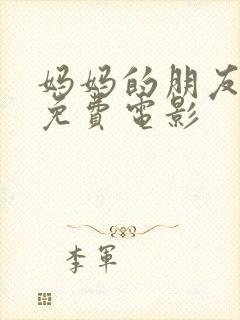 妈妈的朋友
免費電影
李軍